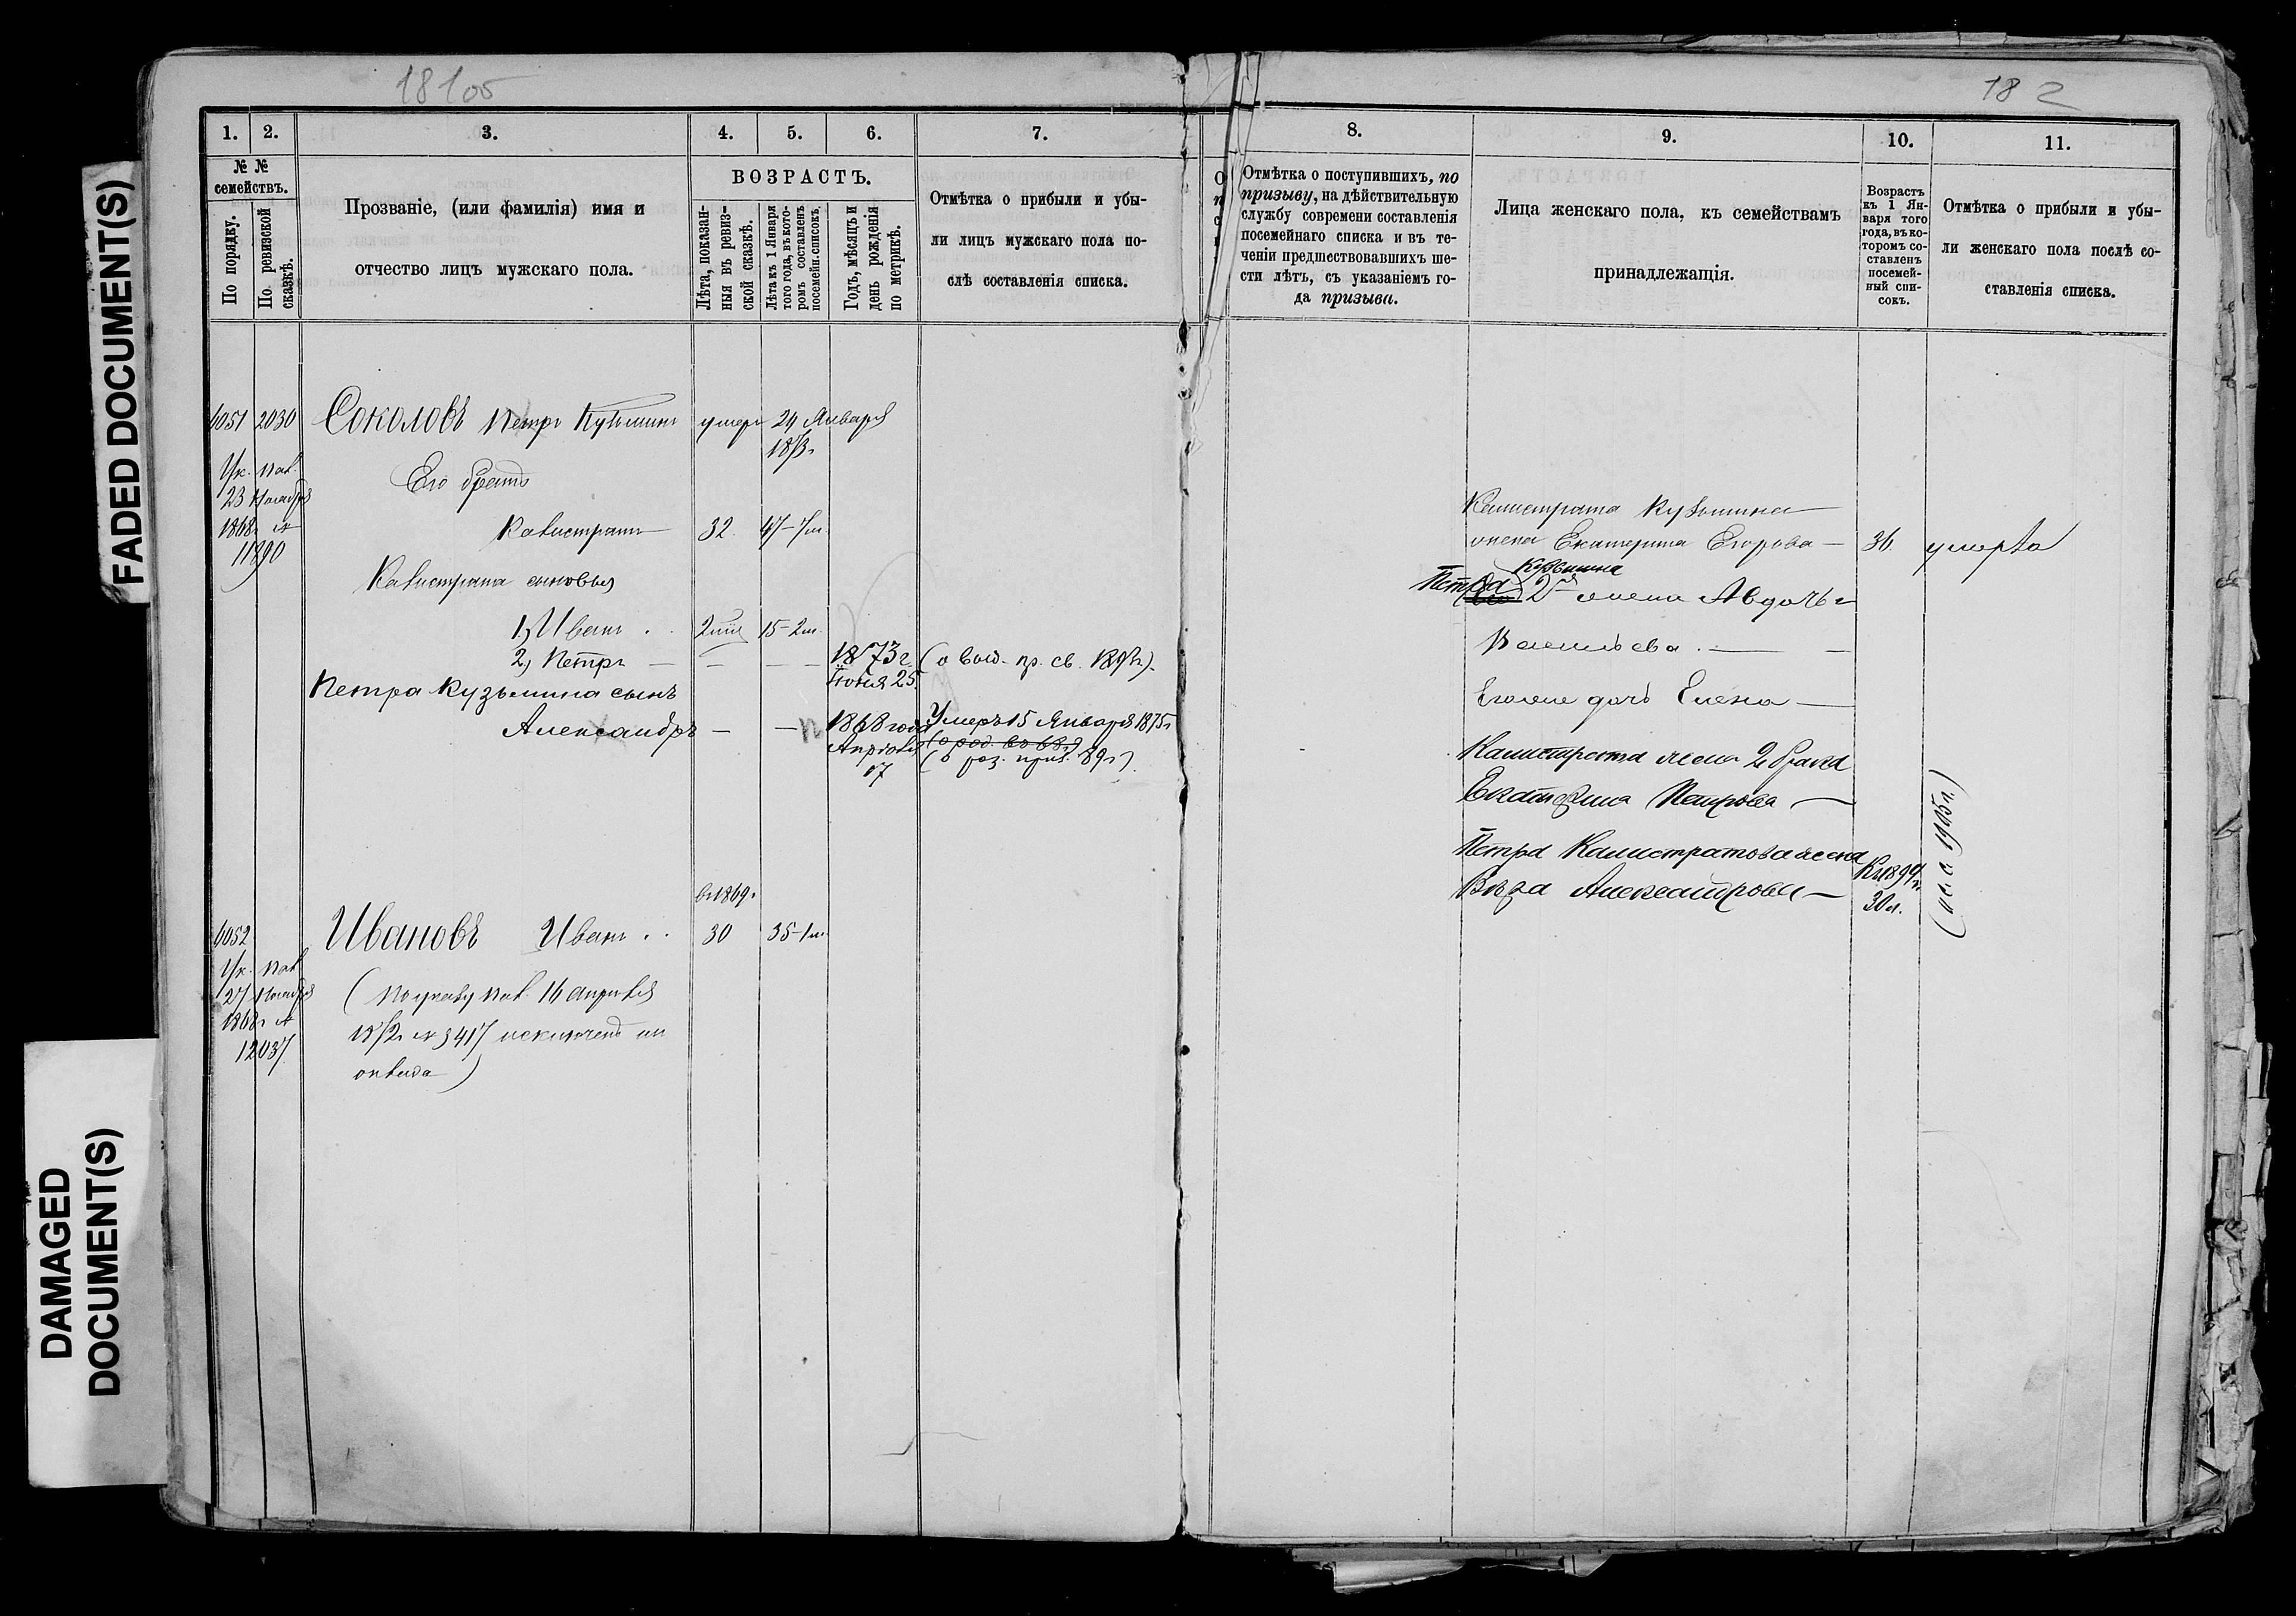 FADED DOCUMENT(S)
DAMAGED
DOCUMENT(S)
181об
1. 2. 3. 4. 5. 6. 7.
№ №
семействъ.
По порядку.
По ревизской
сказкѣ.
Прозваніе, (или фамилія) имя и
отчество лицъ мужскаго пола.
ВОЗРАСТЪ.
Лѣта, показан-
ныя въ ревиз-
ской сказкѣ.
Лѣта къ 1 Января
того года, въ кото-
ромъ составленъ
посемейн. списокъ.
Годъ, мѣсяцъ и
день рожденія
по метрикѣ.
Отмѣтка о прибыли и убы-
ли лицъ мужскаго пола по-
слѣ составленія списка.
6051 2030 Соколовъ Петръ Кузьминъ умеръ 24 Января
187
Ук. Пал. Его братъ
23 Ноября
1868 г №
11890
Калистратъ 32. 47-7м.
Калистрата сыновья
1, Иванъ 15-2м.
2, Петръ — — — — 1873 г. (о выд. пр. св. 189
Іюня 25.
Петра Кузьмина сынъ
Александръ — — 1868 года Умеръ 15 Января 1875 г
Апрѣля
(о раз. приз. 89 г).
в 1869 г
6052 Ивановъ Иванъ 30 35-1м.
Ук. Пал
27 Ноября
1868 г №
12037.
(По указу Пал. 16 апрѣля
№ 3417 исключенъ из
оклада)
182
8. 9. 10. 11.
Отмѣтка о поступившихъ, по
призыву, на дѣйствительную
службу современи составленія
посемейнаго списка и въ те-
ченіи предшествовавшихъ ше-
сти лѣтъ, съ указаніемъ го-
да призыва.
Лица женскаго пола, къ семействамъ
принадлежащія.
Возрастъ
къ 1 Ян-
варя того
года, въ ко-
торомъ со-
ставленъ
посемей-
ный спи-
сокъ.
Отмѣтка о прибыли и убы-
ли женскаго пола послѣ со-
ставленія списка.
Калистрата Кузьмина
жена Екатерина Егорова — 36. умерла
Кузьмина
Петра 2я жена Авдотья
Васильева. — —
дочь Елена —
Калистрата жена 2 брака
Екатерина Петрова —
Петра Калистратова жена
Вѣра Александрова — К 1899 г.
30 л.
1905 г.)